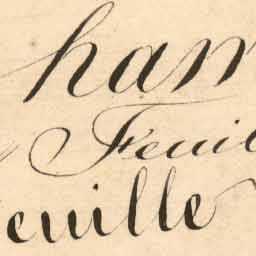 ham
Feuil
euille